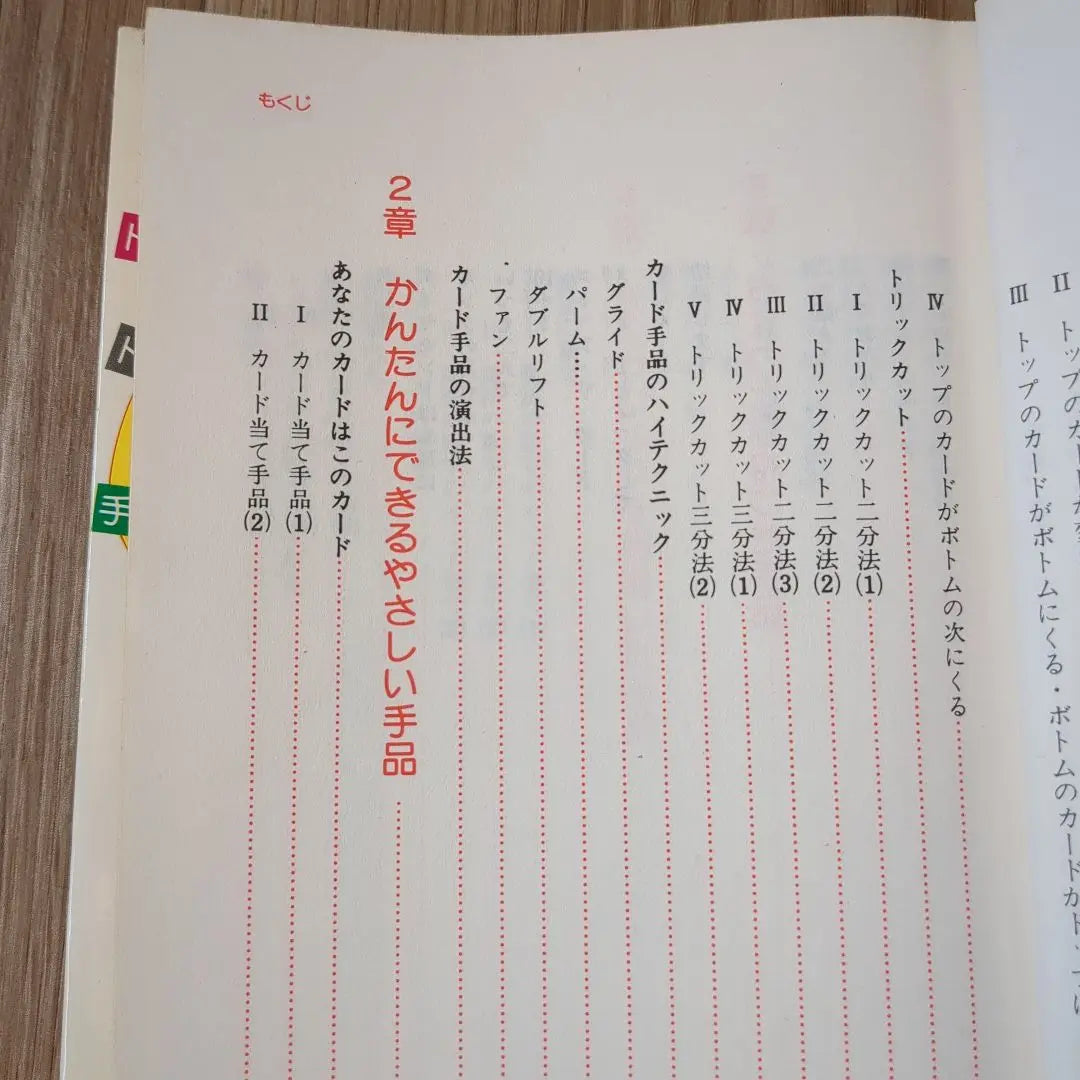 II トップのカードが
III トップのカードがボトムにくる・ボトムのカードがトップに
もくじ
IV トップのカードがボトムの次にくる
トリックカット
I トリックカット二分法(1)
II トリックカット二分法(2)
III トリックカット二分法(3)
IV トリックカット三分法(1)
V トリックカット三分法(2)
カード手品のハイテクニック
グライド
パーム
ダブルリフト
ファン
カード手品の演出法
2章 かんたんにできるやさしい手品
あなたのカードはこのカード
I カード当て手品(1)
II カード当て手品(2)
ト
ト
手